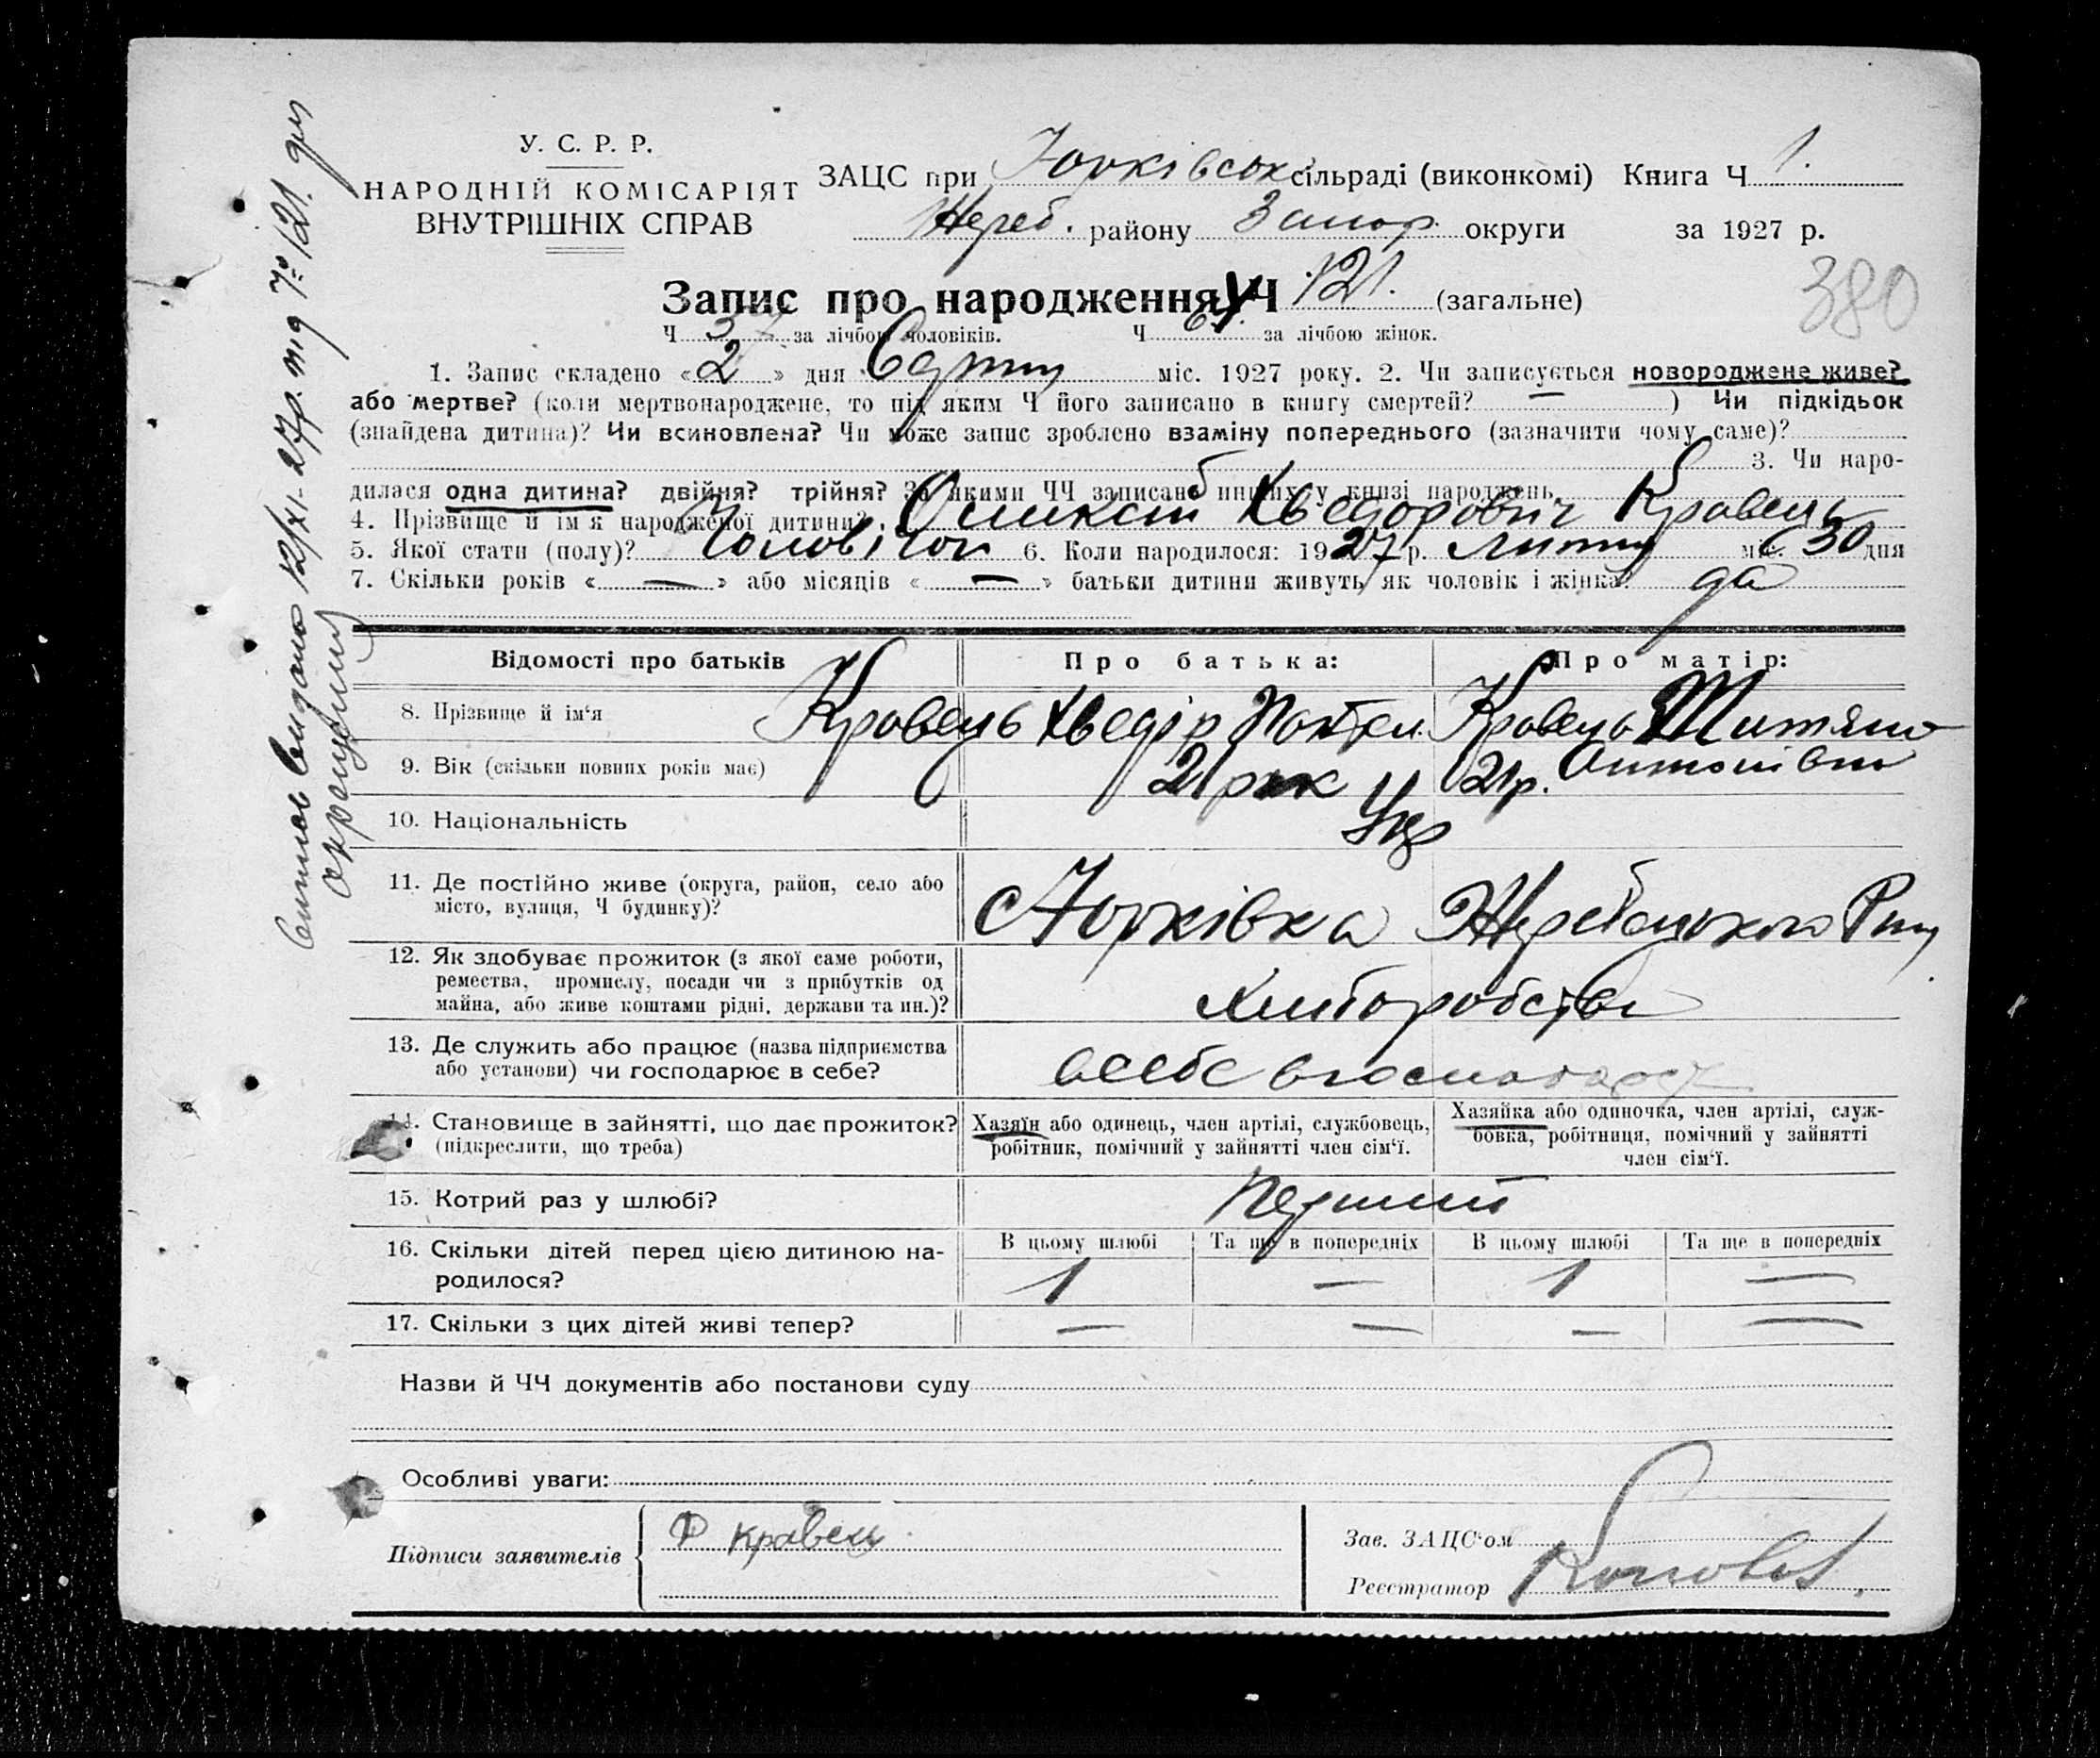 У. С. Р. Р.
НАРОДНІЙ КОМІСАРІЯТ
ВНУТРІШНІХ СПРАВ
ЗАЦС при Юрківськ сільраді (виконкомі) Книга Ч 1.
Жереб. району Запор. округи за 1927 р.
380
Запис про народження Ч 121. (загальне)
Ч 57 за лічбою чоловіків. Ч за лічбою жінок.
1. Запис складено «2» дня Серпня міс. 1927 року. 2. Чи записується новороджене живе?
або мертве? (коли мертвонароджене, то під яким Ч його записано в книгу смертей? — ) Чи підкідьок
(знайдена дитина)? Чи всиновлена? Чи може запис зроблено взаміну попереднього (зазначити чому саме)?
3. Чи наро-
дилася одна дитина? двійня? трійня? За якими ЧЧ записано инших у книзі народжень
4. Прізвище й ім'я народженої дитини? Хведорович Кравець
5. Якої стати (полу)? Чоловічої 6. Коли народилося: 1927 р. Липня міс. 30 дня
7. Скільки років «—» або місяців «—» батьки дитини живуть як чоловік і жінка? да
Відомості про батьків Про батька: Про матір:
8. Прізвище й ім'я Кравець Хведір Кравець Титяна
9. Вік (скільки повних років має) 21 рік 21 р. Антонівна
10. Національність Укр
11. Де постійно живе (округа, район, село або
місто, вулиця, Ч будинку)?
с Юрківка Жеребецького Р-ну
12. Як здобуває прожиток (з якої саме роботи,
ремества, промислу, посади чи з прибутків од
майна, або живе коштами рідні, держави та ин.)?
Хліборобство
13. Де служить або працює (назва підприємства
або установи) чи господарює в себе?
всебе вгосподарст
14. Становище в зайнятті, що дає прожиток?
(підкреслити, що треба)
Хазяїн або одинець, член артілі, службовець,
робітник, помічний у зайнятті член сім'ї.
Хазяйка або одиночка, член артілі, служ-
бовка, робітниця, помічний у зайнятті
член сім'ї.
15. Котрий раз у шлюбі? Перший
16. Скільки дітей перед цією дитиною на-
родилося?
В цьому шлюбі Та ще в попередніх В цьому шлюбі Та ще в попередніх
1 — 1 —
17. Скільки з цих дітей живі тепер? — — — —
Назви й ЧЧ документів або постанови суду
Особливі уваги:
Підписи заявителів Ф Кравец
Зав. ЗАЦС'ом
Реєстратор